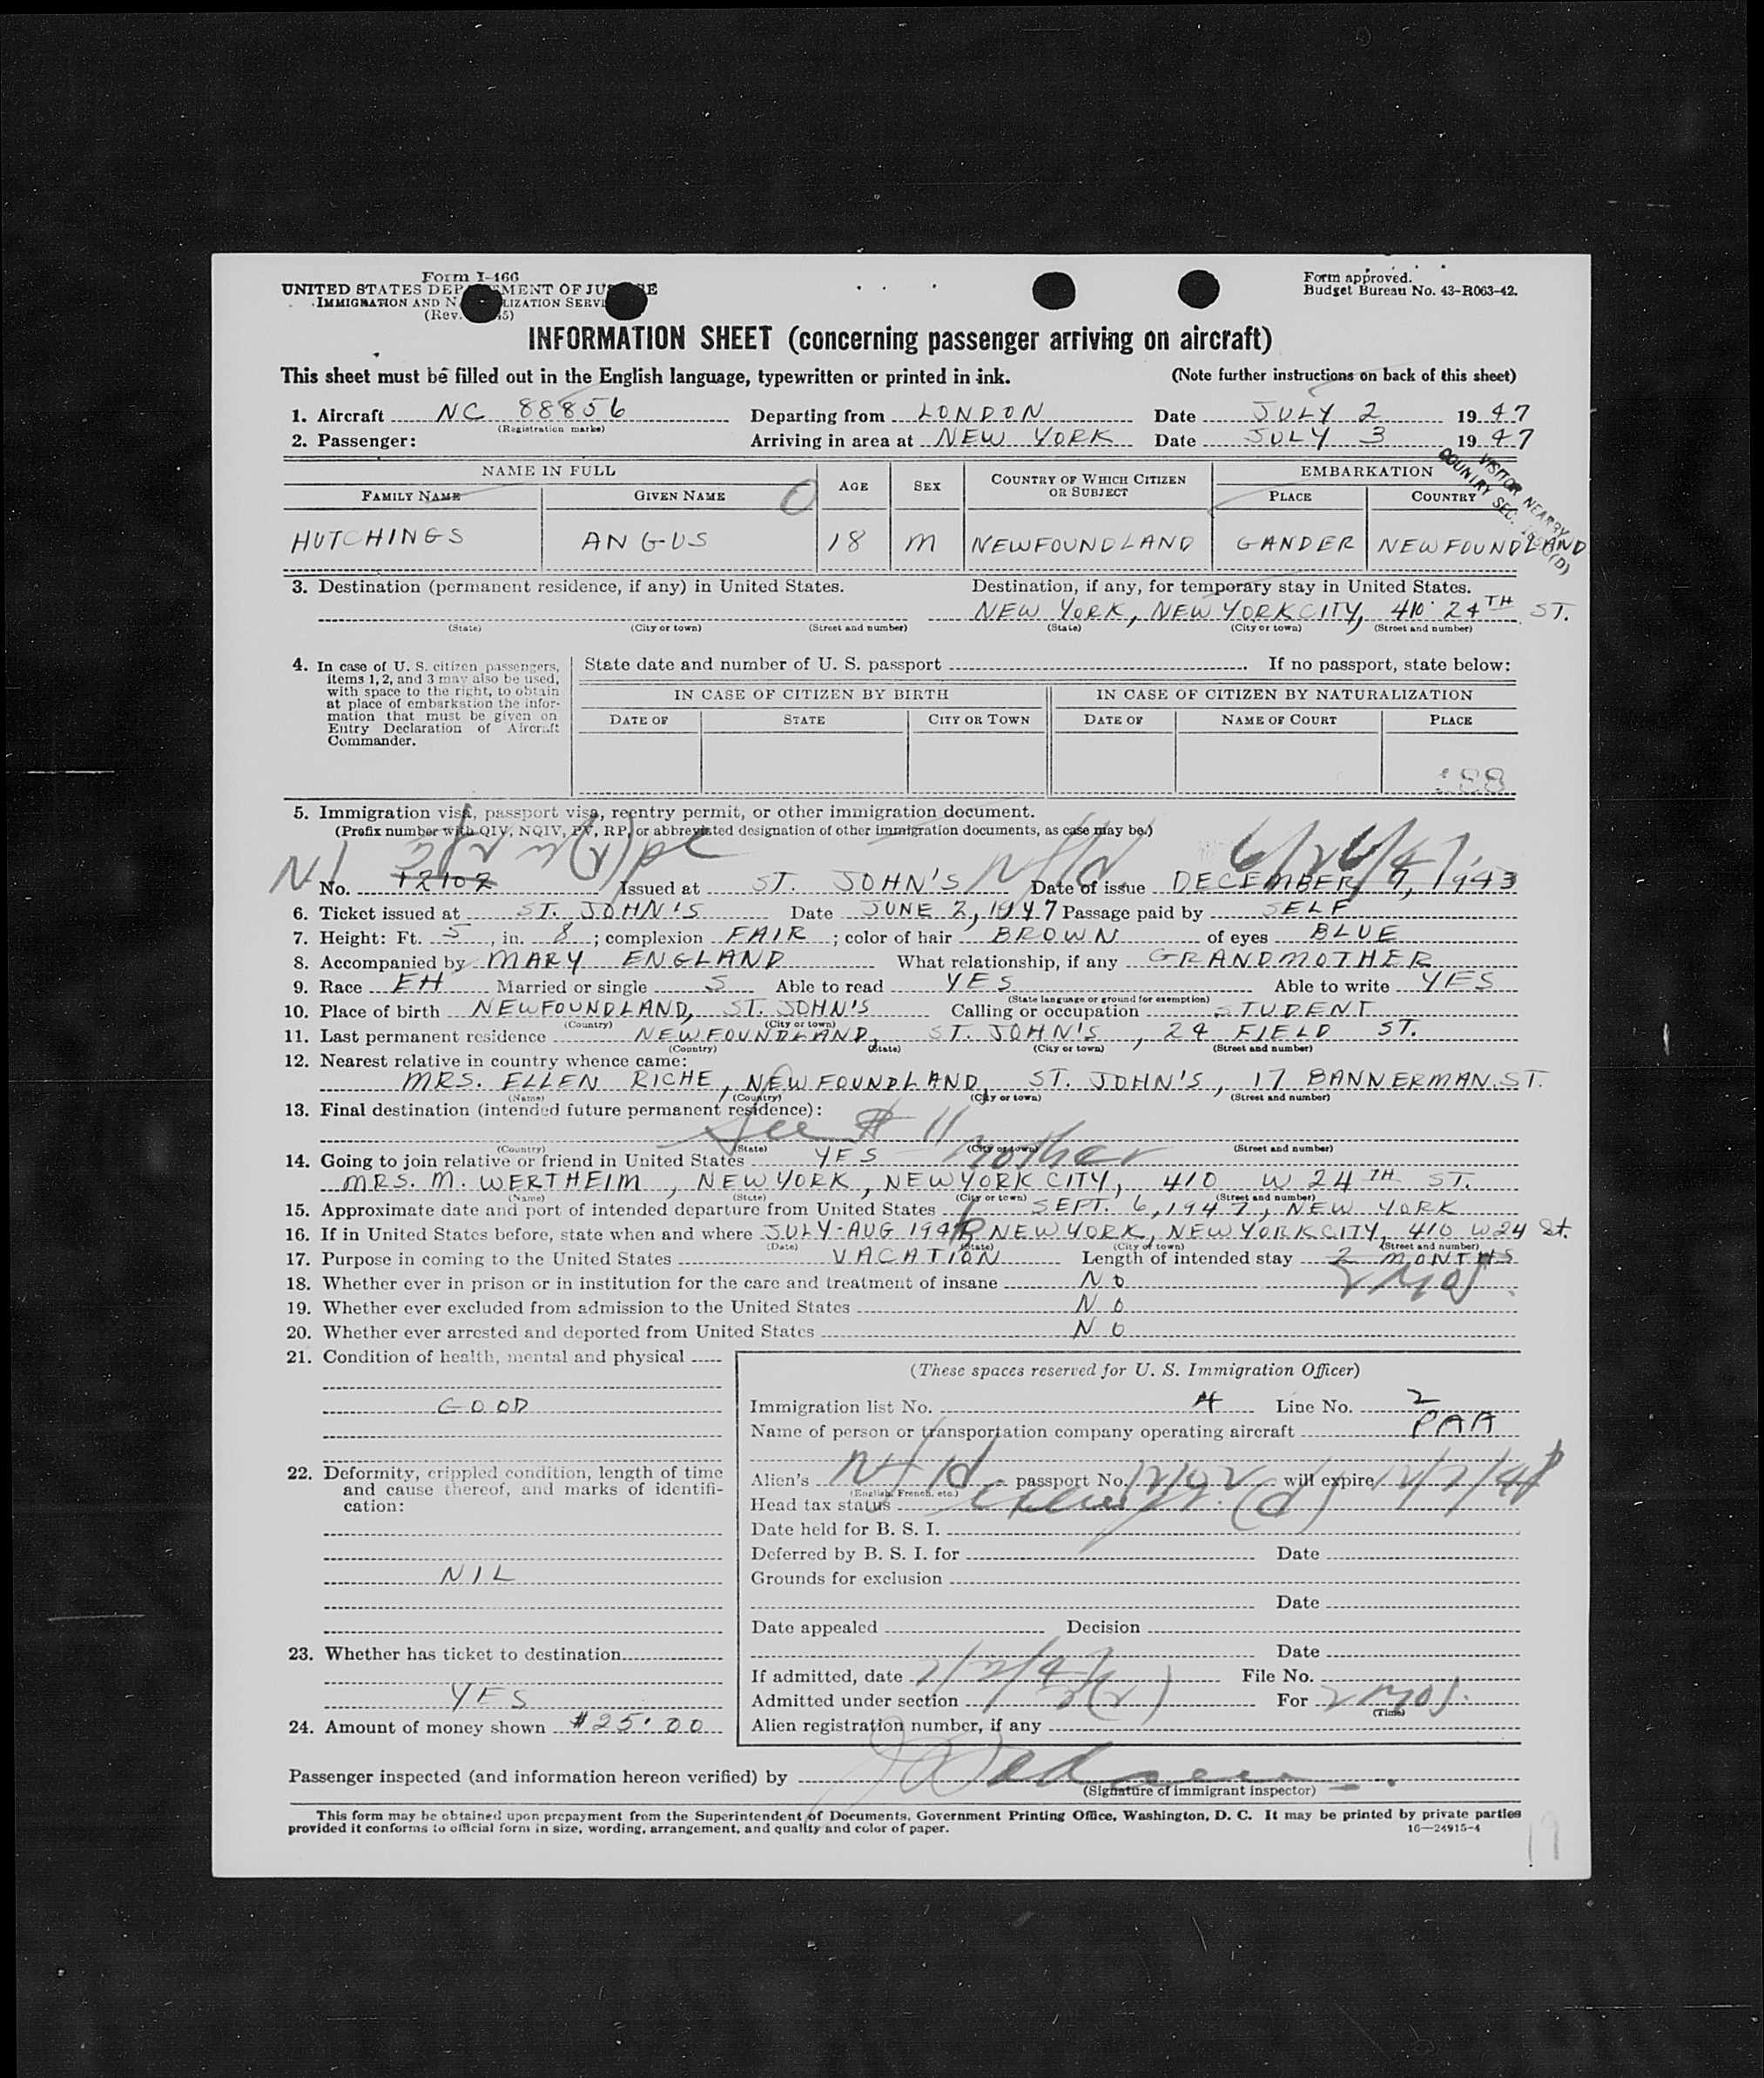 Form I-466
UNITED STATES DEPARTMENT OF JUSTICE
IMMIGRATION AND NATURALIZATION SERVICE
(Rev. 45)
Form approved.
Budget Bureau No. 43-R063-42.
INFORMATION SHEET (concerning passenger arriving on aircraft)
This sheet must be filled out in the English language, typewritten or printed in ink. (Note further instructions on back of this sheet)
1. Aircraft NC 88856 Departing from LONDON Date JULY 2 1947
(Registration marks)
2. Passenger: Arriving in area at NEW YORK Date JULY 3 1947
VISITOR NEARBY
COUNTRY SEC.
(D)
NAME IN FULL AGE SEX COUNTRY OF WHICH CITIZEN OR SUBJECT EMBARKATION
FAMILY NAME GIVEN NAME PLACE COUNTRY
HUTCHINGS ANGUS 18 M NEWFOUNDLAND GANDER NEWFOUNDLAND
3. Destination (permanent residence, if any) in United States. Destination, if any, for temporary stay in United States.
NEW YORK, NEW YORK CITY, 410 24TH ST.
(State) (City or town) (Street and number) (State) (City or town) (Street and number)
4. In case of U. S. citizen passengers, items 1, 2, and 3 may also be used, with space to the right, to obtain at place of embarkation the information that must be given on Entry Declaration of Aircraft Commander.
State date and number of U. S. passport If no passport, state below:
IN CASE OF CITIZEN BY BIRTH IN CASE OF CITIZEN BY NATURALIZATION
DATE OF STATE CITY OR TOWN DATE OF NAME OF COURT PLACE
88
5. Immigration visa, passport visa, reentry permit, or other immigration document.
(Prefix number with QIV, NQIV, PV, RP, or abbreviated designation of other immigration documents, as case may be.)
3(2) Nfld 6/26/47
No. 12102 Issued at ST. JOHN'S Date of issue DECEMBER 7, 1943
6. Ticket issued at ST. JOHN'S Date JUNE 2, 1947 Passage paid by SELF
7. Height: Ft. 5, in. 8; complexion FAIR; color of hair BROWN of eyes BLUE
8. Accompanied by MARY ENGLAND What relationship, if any GRANDMOTHER
9. Race EH Married or single S Able to read YES Able to write YES
(State language or ground for exemption)
10. Place of birth NEWFOUNDLAND, ST. JOHN'S Calling or occupation STUDENT
(Country) (City or town)
11. Last permanent residence NEWFOUNDLAND, ST. JOHN'S, 24 FIELD ST.
(Country) (State) (City or town) (Street and number)
12. Nearest relative in country whence came:
MRS. ELLEN RICHE, NEWFOUNDLAND, ST. JOHN'S, 17 BANNERMAN ST.
(Name) (Country) (City or town) (Street and number)
13. Final destination (intended future permanent residence):
See # 11
(Country) (State) (City or town) (Street and number)
14. Going to join relative or friend in United States YES mother
MRS. M. WERTHEIM, NEW YORK, NEW YORK CITY, 410 W 24TH ST.
(Name) (State) (City or town) (Street and number)
15. Approximate date and port of intended departure from United States SEPT. 6, 1947, NEW YORK
16. If in United States before, state when and where JULY-AUG 1946 NEW YORK, NEW YORK CITY, 410 W 24 St.
(Date) (State) (City or town) (Street and number)
17. Purpose in coming to the United States VACATION Length of intended stay 2 MONTHS
2 mos
18. Whether ever in prison or in institution for the care and treatment of insane NO
19. Whether ever excluded from admission to the United States NO
20. Whether ever arrested and deported from United States NO
21. Condition of health, mental and physical
GOOD
22. Deformity, crippled condition, length of time and cause thereof, and marks of identification:
NIL
23. Whether has ticket to destination
YES
24. Amount of money shown $25.00
(These spaces reserved for U. S. Immigration Officer)
Immigration list No. 4 Line No. 2
Name of person or transportation company operating aircraft PAA
Alien's Nfld passport No. 12102 will expire 12/7/48
(English, French, etc.)
Head tax status (d)
Date held for B. S. I.
Deferred by B. S. I. for Date
Grounds for exclusion
Date
Date appealed Decision
Date
If admitted, date 7/2/47 File No.
Admitted under section 3(2) For 2 mos.
(Time)
Alien registration number, if any
Passenger inspected (and information hereon verified) by
(Signature of immigrant inspector)
This form may be obtained upon prepayment from the Superintendent of Documents, Government Printing Office, Washington, D. C. It may be printed by private parties
provided it conforms to official form in size, wording, arrangement, and quality and color of paper. 16—24915-4
19